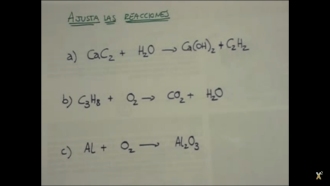 AJUSTA LAS REACCIONES
a) CaC₂ + H₂O → Ca(OH)₂ + C₂H₂
b) C₃H₈ + O₂ → CO₂ + H₂O
c) Al + O₂ → Al₂O₃